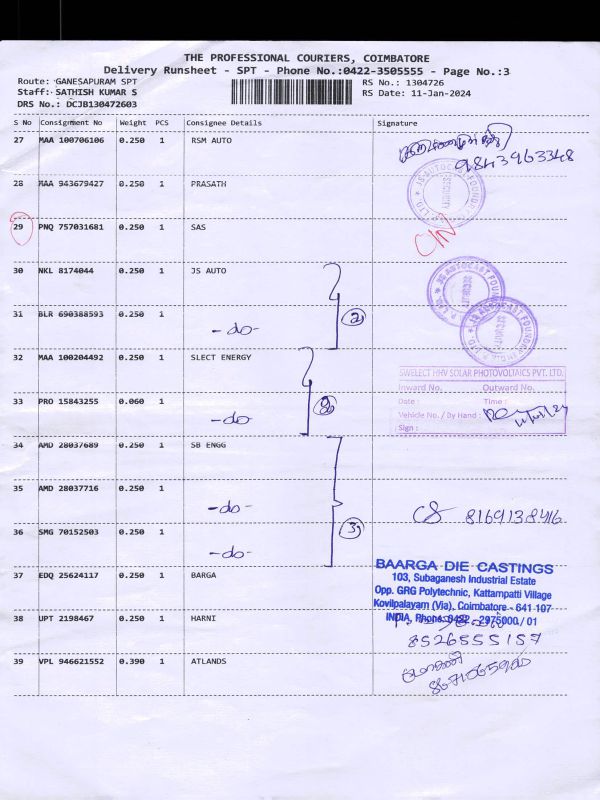 THE PROFESSIONAL COURIERS, COIMBATORE
Delivery Runsheet - SPT - Phone No.:0422-3505555 - Page No.:3
Route: GANESAPURAM SPT
Staff: SATHISH KUMAR S
DRS No.: DCJB130472603
RS No.: 1304726
RS Date: 11-Jan-2024
S No Consignment No Weight PCS Consignee Details Signature
27 MAA 100706106 0.250 1 RSM AUTO
9843963348
28 MAA 943679427 0.250 1 PRASATH
29 PNQ 757031681 0.250 1 SAS
30 NKL 8174044 0.250 1 JS AUTO
31 BLR 690388593 0.250 1 -do- 2
32 MAA 100204492 0.250 1 SLECT ENERGY
SWELECT HHV SOLAR PHOTOVOLTAICS PVT. LTD.
Inward No. Outward No.
Date : Time :
Vehicle No. / By Hand :
Sign :
33 PRO 15843255 0.060 1 -do- 2
34 AMD 28037689 0.250 1 SB ENGG
35 AMD 28037716 0.250 1 -do-
8169138416
36 SMG 70152503 0.250 1 -do- 3
37 EDQ 25624117 0.250 1 BARGA
BAARGA DIE CASTINGS
103, Subaganesh Industrial Estate
Opp. GRG Polytechnic, Kattampatti Village
Kovilpalayam (Via), Coimbatore - 641 107
INDIA, Phone: 0422 - 2975000 / 01
38 UPT 2198467 0.250 1 HARNI
8526555157
39 VPL 946621552 0.390 1 ATLANDS